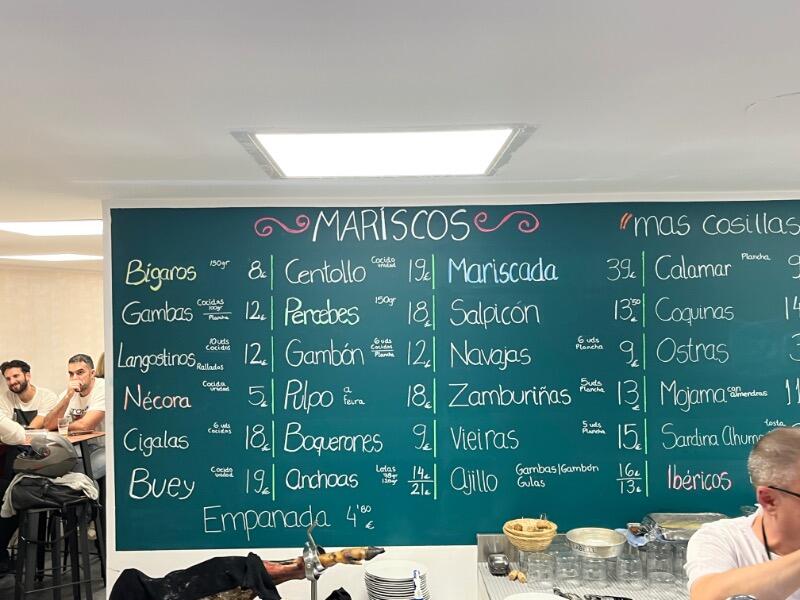 MARÍSCOS
mas cosillas
Bígaros 150gr 8€
Gambas Cocidas 100gr Plancha 12€
Langostinos 10uds Cocidos Ralladas 12€
Nécora Cocida unidad 5€
Cigalas 6 uds Cocidas 18€
Buey Cocido unidad 19€
Empanada 4'80 €
Centollo Cocido unidad 19€
Percebes 150gr 18€
Gambón 6 uds Cocidos Plancha 12€
Pulpo a feira 18€
Boquerones 9€
Anchoas Latas 14€ 21€
Mariscada 39€
Salpicón 13'50 €
Navajas 6 uds Plancha 9€
Zamburiñas 5uds Plancha 13€
Vieiras 5 uds Plancha 15€
Ajillo Gambas/Gambón Gulas 16€ 13€
Calamar Plancha 9
Coquinas 14
Ostras 3
Mojama con almendras 11
Sardina Ahuma
Ibéricos